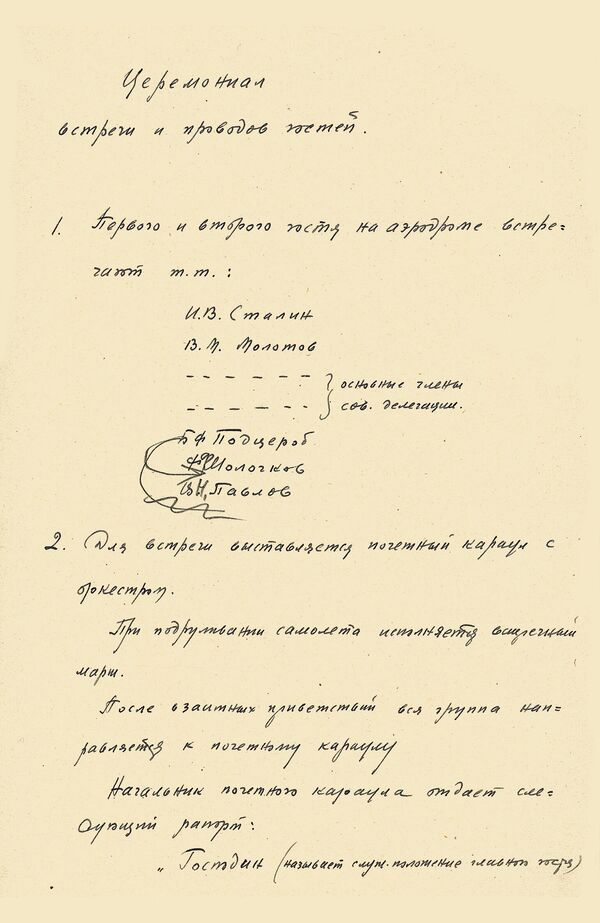 Церемониал
встречи и проводов гостей.
1. Первого и второго гостя на аэродроме встре=
чают т.т.:
И.В. Сталин
В.М. Молотов
основные члены
сов. делегации.
Б Ф Подцероб
Ф Ф Молочков
В.Н. Павлов
2. Для встречи выставляется почетный караул с
оркестром.
При подруливании самолета исполняется встречный
марш.
После взаимных приветствий вся группа нап=
равляется к почетному караулу
Начальник почетного караула отдает сле=
дующий рапорт:
„Господин (называет служ. положение главного гостя)